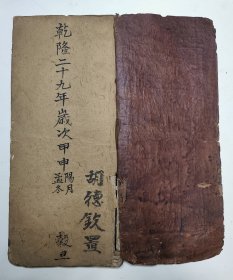 乾隆二十九年歲次甲申陽月孟冬 穀旦
胡德欽置